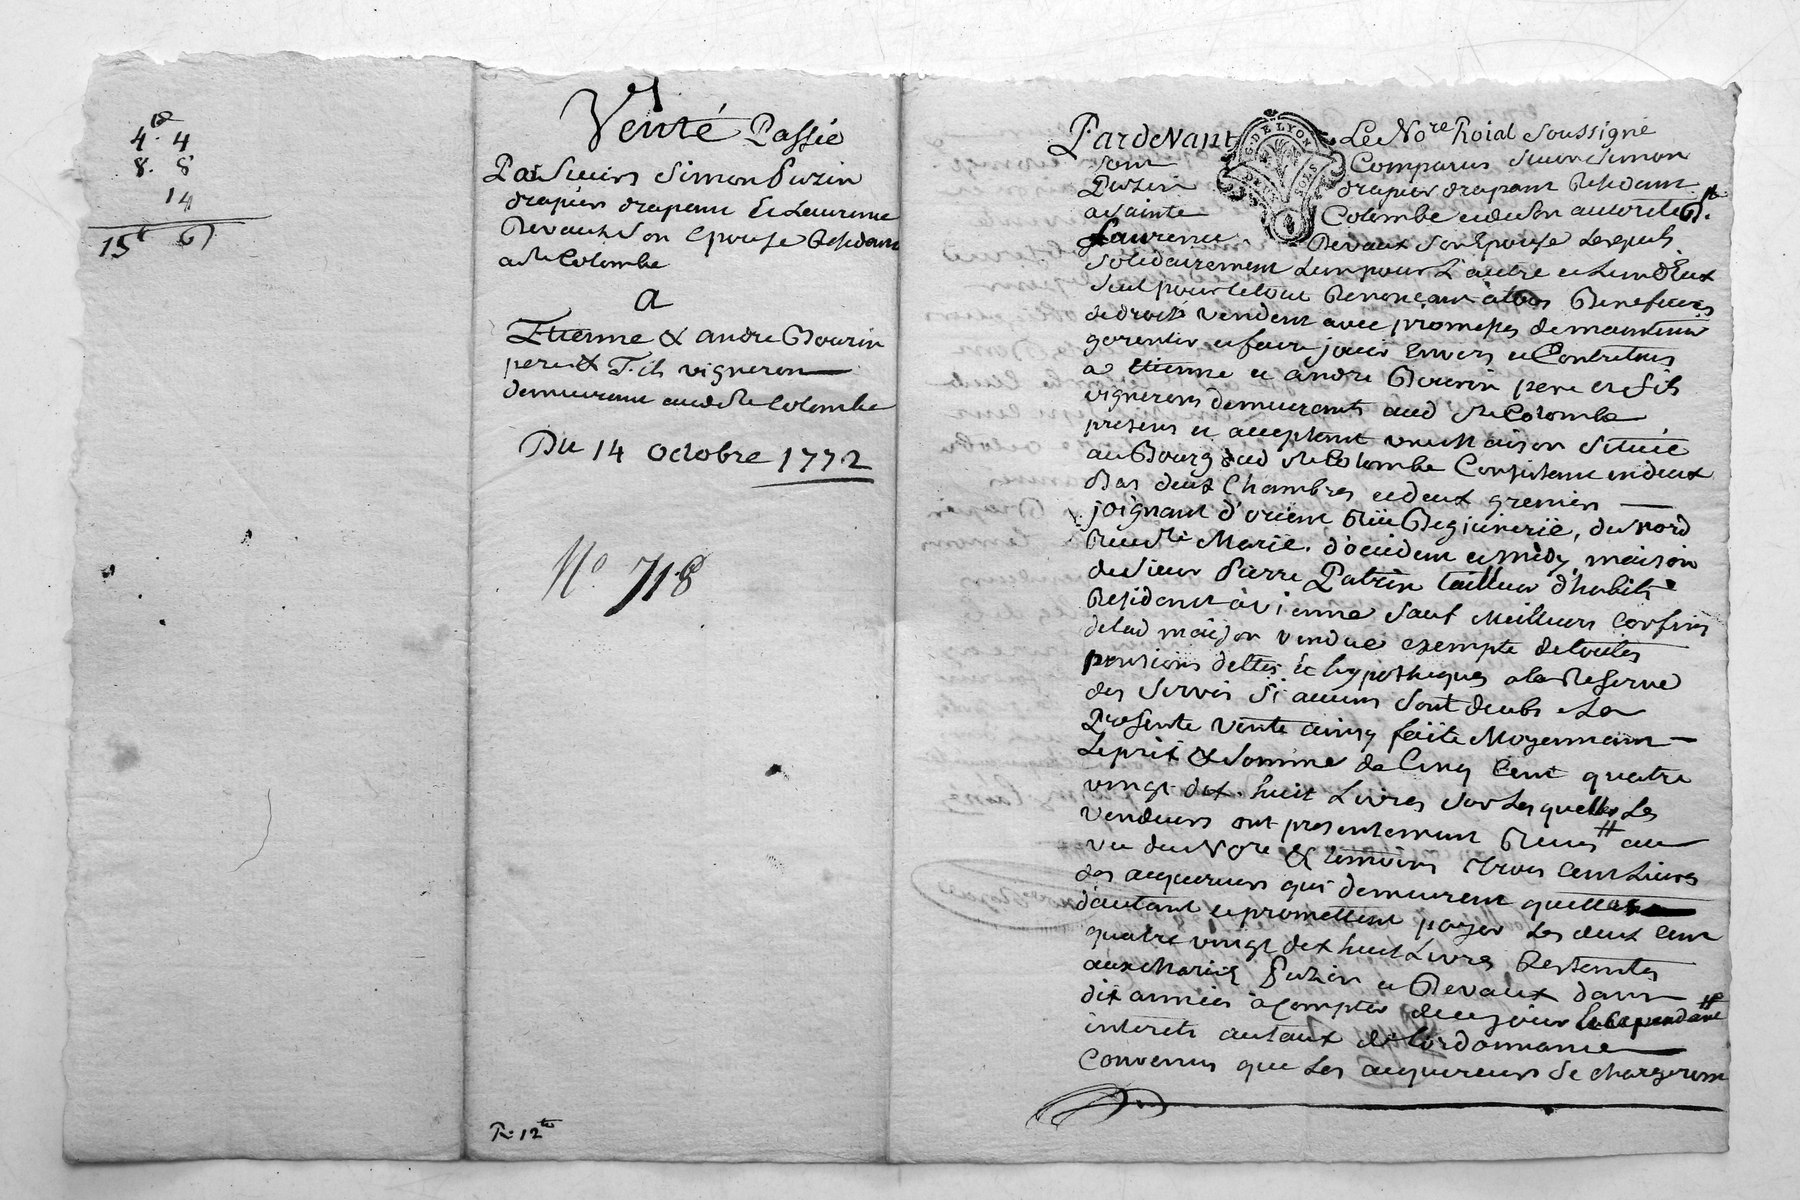 4.# 4
8. 8
14
15# 6
Venté Passée
Par Sieurs Simon Puzin
drapier drapant Et Laurence
Devaux son Epouse Residant
a Ste Colombe
a
Etienne & andre Bourin
pere & Fils vigneron
demeurant aud. Ste Colombe
Du 14 octobre 1772
No 718
R: 12
Pardevant Le Nore Roial soussigné
sont Comparus Sieur Simon
Puzin drapier drapant Residant
a Sainte Colombe et de son autorité
Laurence Devaux son Epouse Lesquels
solidairement L'un pour L'autre et L'un d'Eux
seul pour le tout Renonçant à tous Benefices
de droits vendent avec promesses de maintenir
garentir et faire jouir Envers et Contre tous
a Etienne et andre Bourin pere et fils
vignerons demeurants aud Ste Colombe
presens et acceptant une Maison Située
au Bourg dud Ste Colombe Consistant en deux
Bas deux Chambres et deux greniers
joignant d'orient Rüe
du Nord
Rue Ste Marie. d'occident et midy, maison
du sieur Pierre Patrin Tailleur d'habits
Residant à Vienne sauf Meilleurs Confins
delad maison vendue exempte de toutes
pensions dettes & hypotheques a la Reserve
des servis si aucuns sont deubs La
Presente vente ainsy faite Moyennant
Le prix & somme de Cinq Cent quatre
vingt dix huit Livres sur Lesquelles Les
vendeurs ont presentement Reçus # au
vu du Nore & temoins Trois Cent Livres
des acquereurs qui demeurent quittes
d'autant et promettent payer Les deux Cent
quatre vingt dix huit Livres Restantes
aux Mariés Puzin et Devaux dans
dix années à Compter de ce jour
interets au taux de L'ordonnance
Convenus que Les acquereurs se chargeront